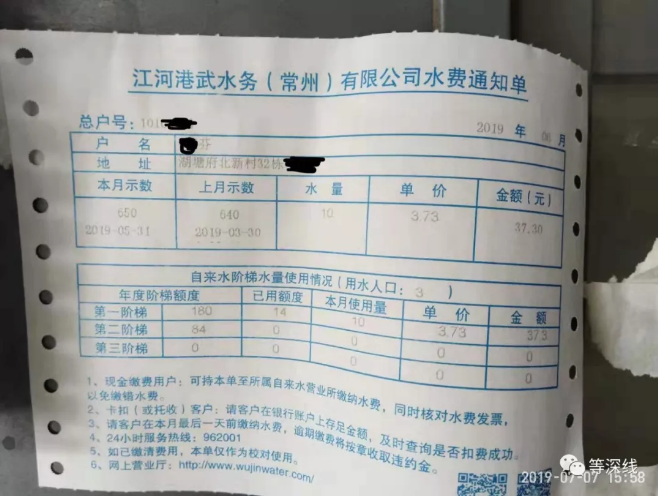 江河港武水务(常州)有限公司水费通知单
总户号: 101
2019 年 06 月
户 名 芬
地 址 湖塘府北新村32栋
本月示数 上月示数 水 量 单 价 金额(元)
650 640 10 3.73 37.30
2019-05-31 2019-03-30
自来水阶梯水量使用情况(用水人口: 3 )
年度阶梯额度 已用额度 本月使用量 单 价 金 额
第一阶梯 180 14 10 3.73 37.3
第二阶梯 84 0 0 0
第三阶梯 0 0 0 0
1、现金缴费用户:可持本单至所属自来水营业所缴纳水费,同时核对水费发票,
以免缴错水费。
2、卡扣(或托收)客户:请客户在银行账户上存足金额,及时查询是否扣费成功。
3、请客户在本月最后一天前缴纳水费,逾期缴费将按章收取违约金。
4、24小时服务热线:962001
5、如已缴清费用,本单仅作为校对使用。
6、网上营业厅:http://www.wujinwater.com/
等深线
2019-07-07 15:58